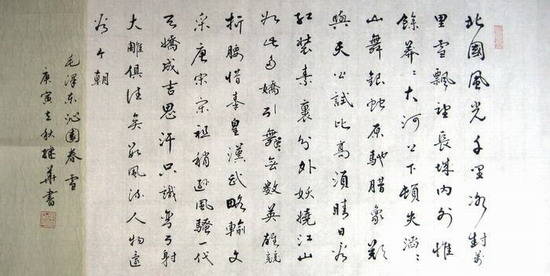 北國風光千里冰封萬
里雪飄望長城內外惟
餘莽〻大河上下頓失滔〻
山舞銀蛇原馳腊象欲
與天公試比高須晴日看
紅裝素裹分外妖嬈江山
如此多嬌引無數英雄競
折腰惜秦皇漢武略輸文
采唐宗宋祖稍遜風騷一代
天嬌成吉思汗只識彎弓射
大雕俱往矣數風流人物還
看今朝
毛澤東沁園春雪
庚寅之秋繼華書